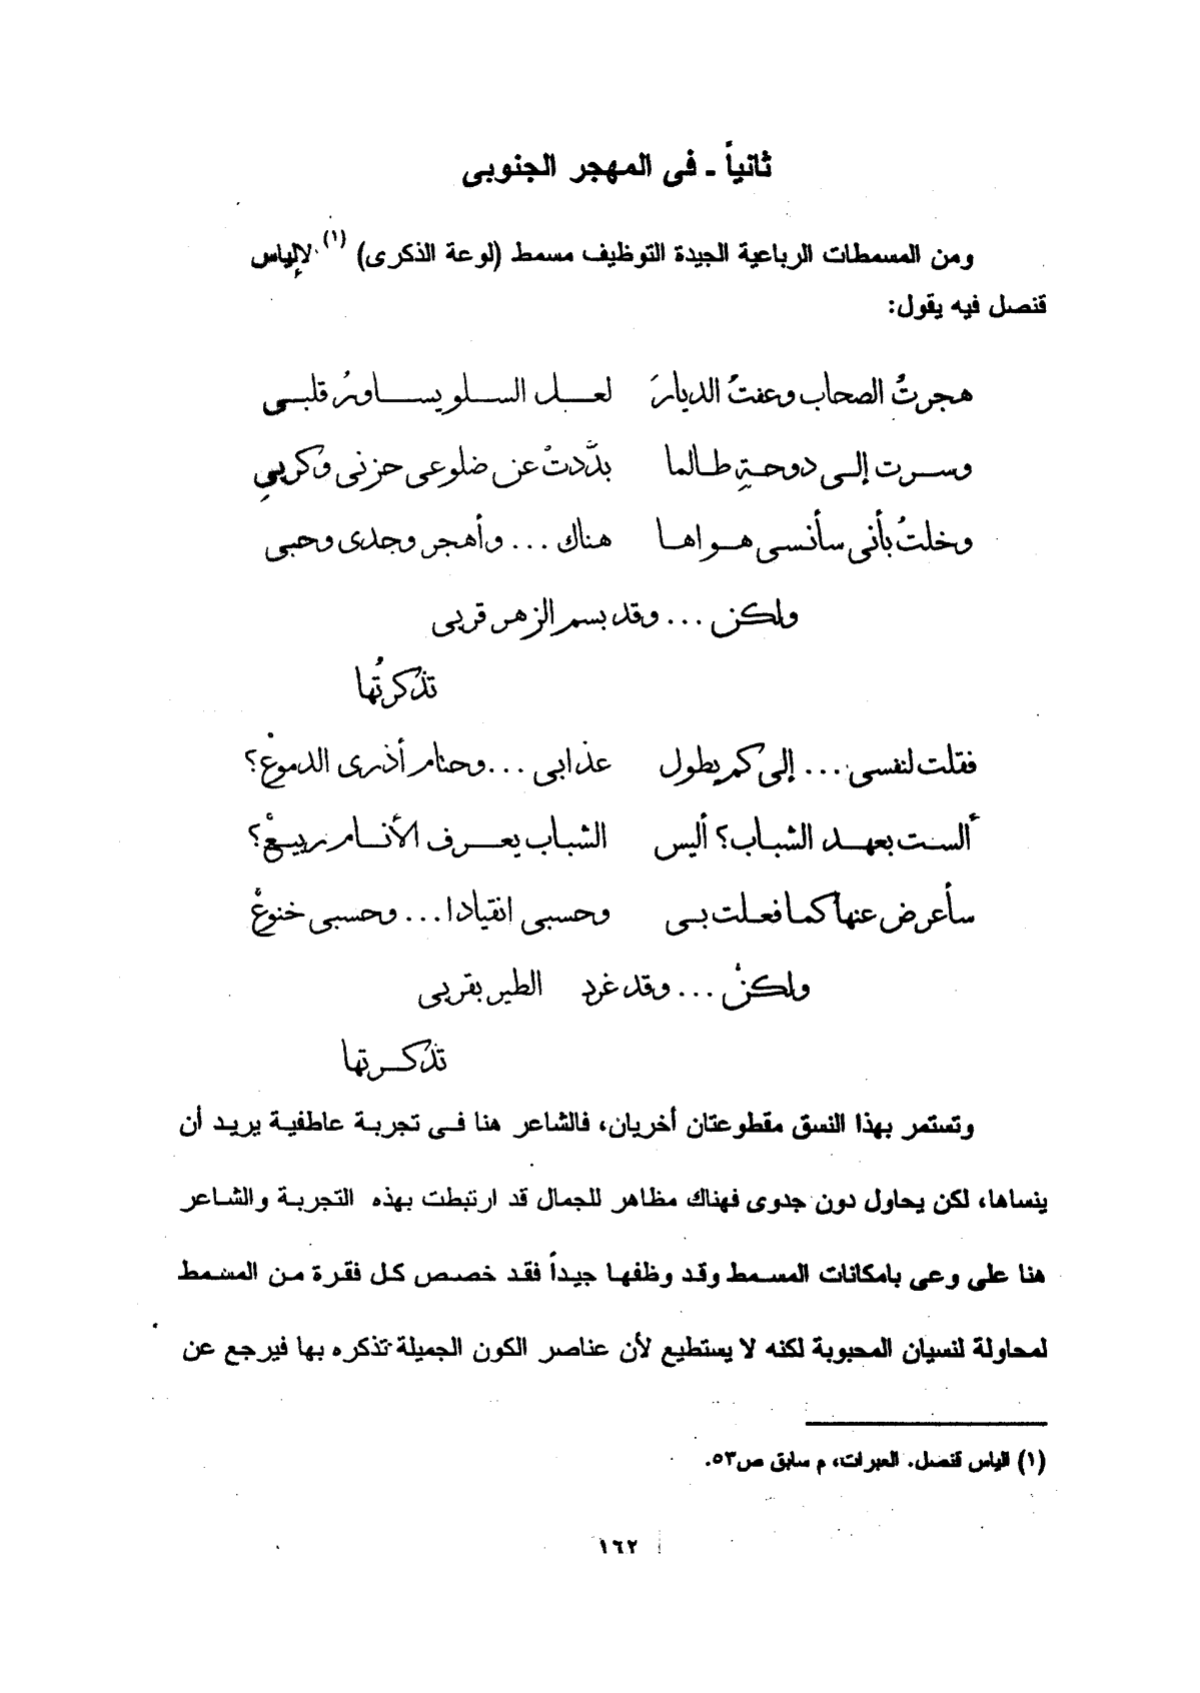 ثانياً ـ فى المهجر الجنوبى
ومن المسمطات الرباعية الجيدة التوظيف مسمط (لوعة الذكرى) (١) لإلياس
قنصل فيه يقول:
هجرتُ الصحاب وعفتُ الديارَ لعل السلو يساورُ قلبى
وسرت إلى دوحةٍ طالما بدَّدتْ عن ضلوعى حزنى وكربىِ
وخلتُ بأنى سأنسى هواها هناك ... وأهجر وجدى وحبى
ولكن ... وقد بسم الزهر قربى
تذكرتُها
فقلت لنفسى ... إلى كم يطول عذابى ... وحتام أذرى الدموعْ؟
ألست بعهد الشباب؟ أليس الشباب يعرف الأنام ربيعْ؟
سأعرض عنها كما فعلت بى وحسبى انقيادا ... وحسبى خنوعْ
ولكنْ ... وقد غرد الطير بقربى
تذكرتها
وتستمر بهذا النسق مقطوعتان أخريان، فالشاعر هنا فى تجربة عاطفية يريد أن
ينساها، لكن يحاول دون جدوى فهناك مظاهر للجمال قد ارتبطت بهذه التجربة والشاعر
هنا على وعى بامكانات المسمط وقد وظفها جيداً فقد خصص كل فقرة من المسمط
لمحاولة لنسيان المحبوبة لكنه لا يستطيع لأن عناصر الكون الجميلة تذكره بها فيرجع عن
(١) الياس قنصل. العبرات، م سابق ص٥٣.
١٦٢